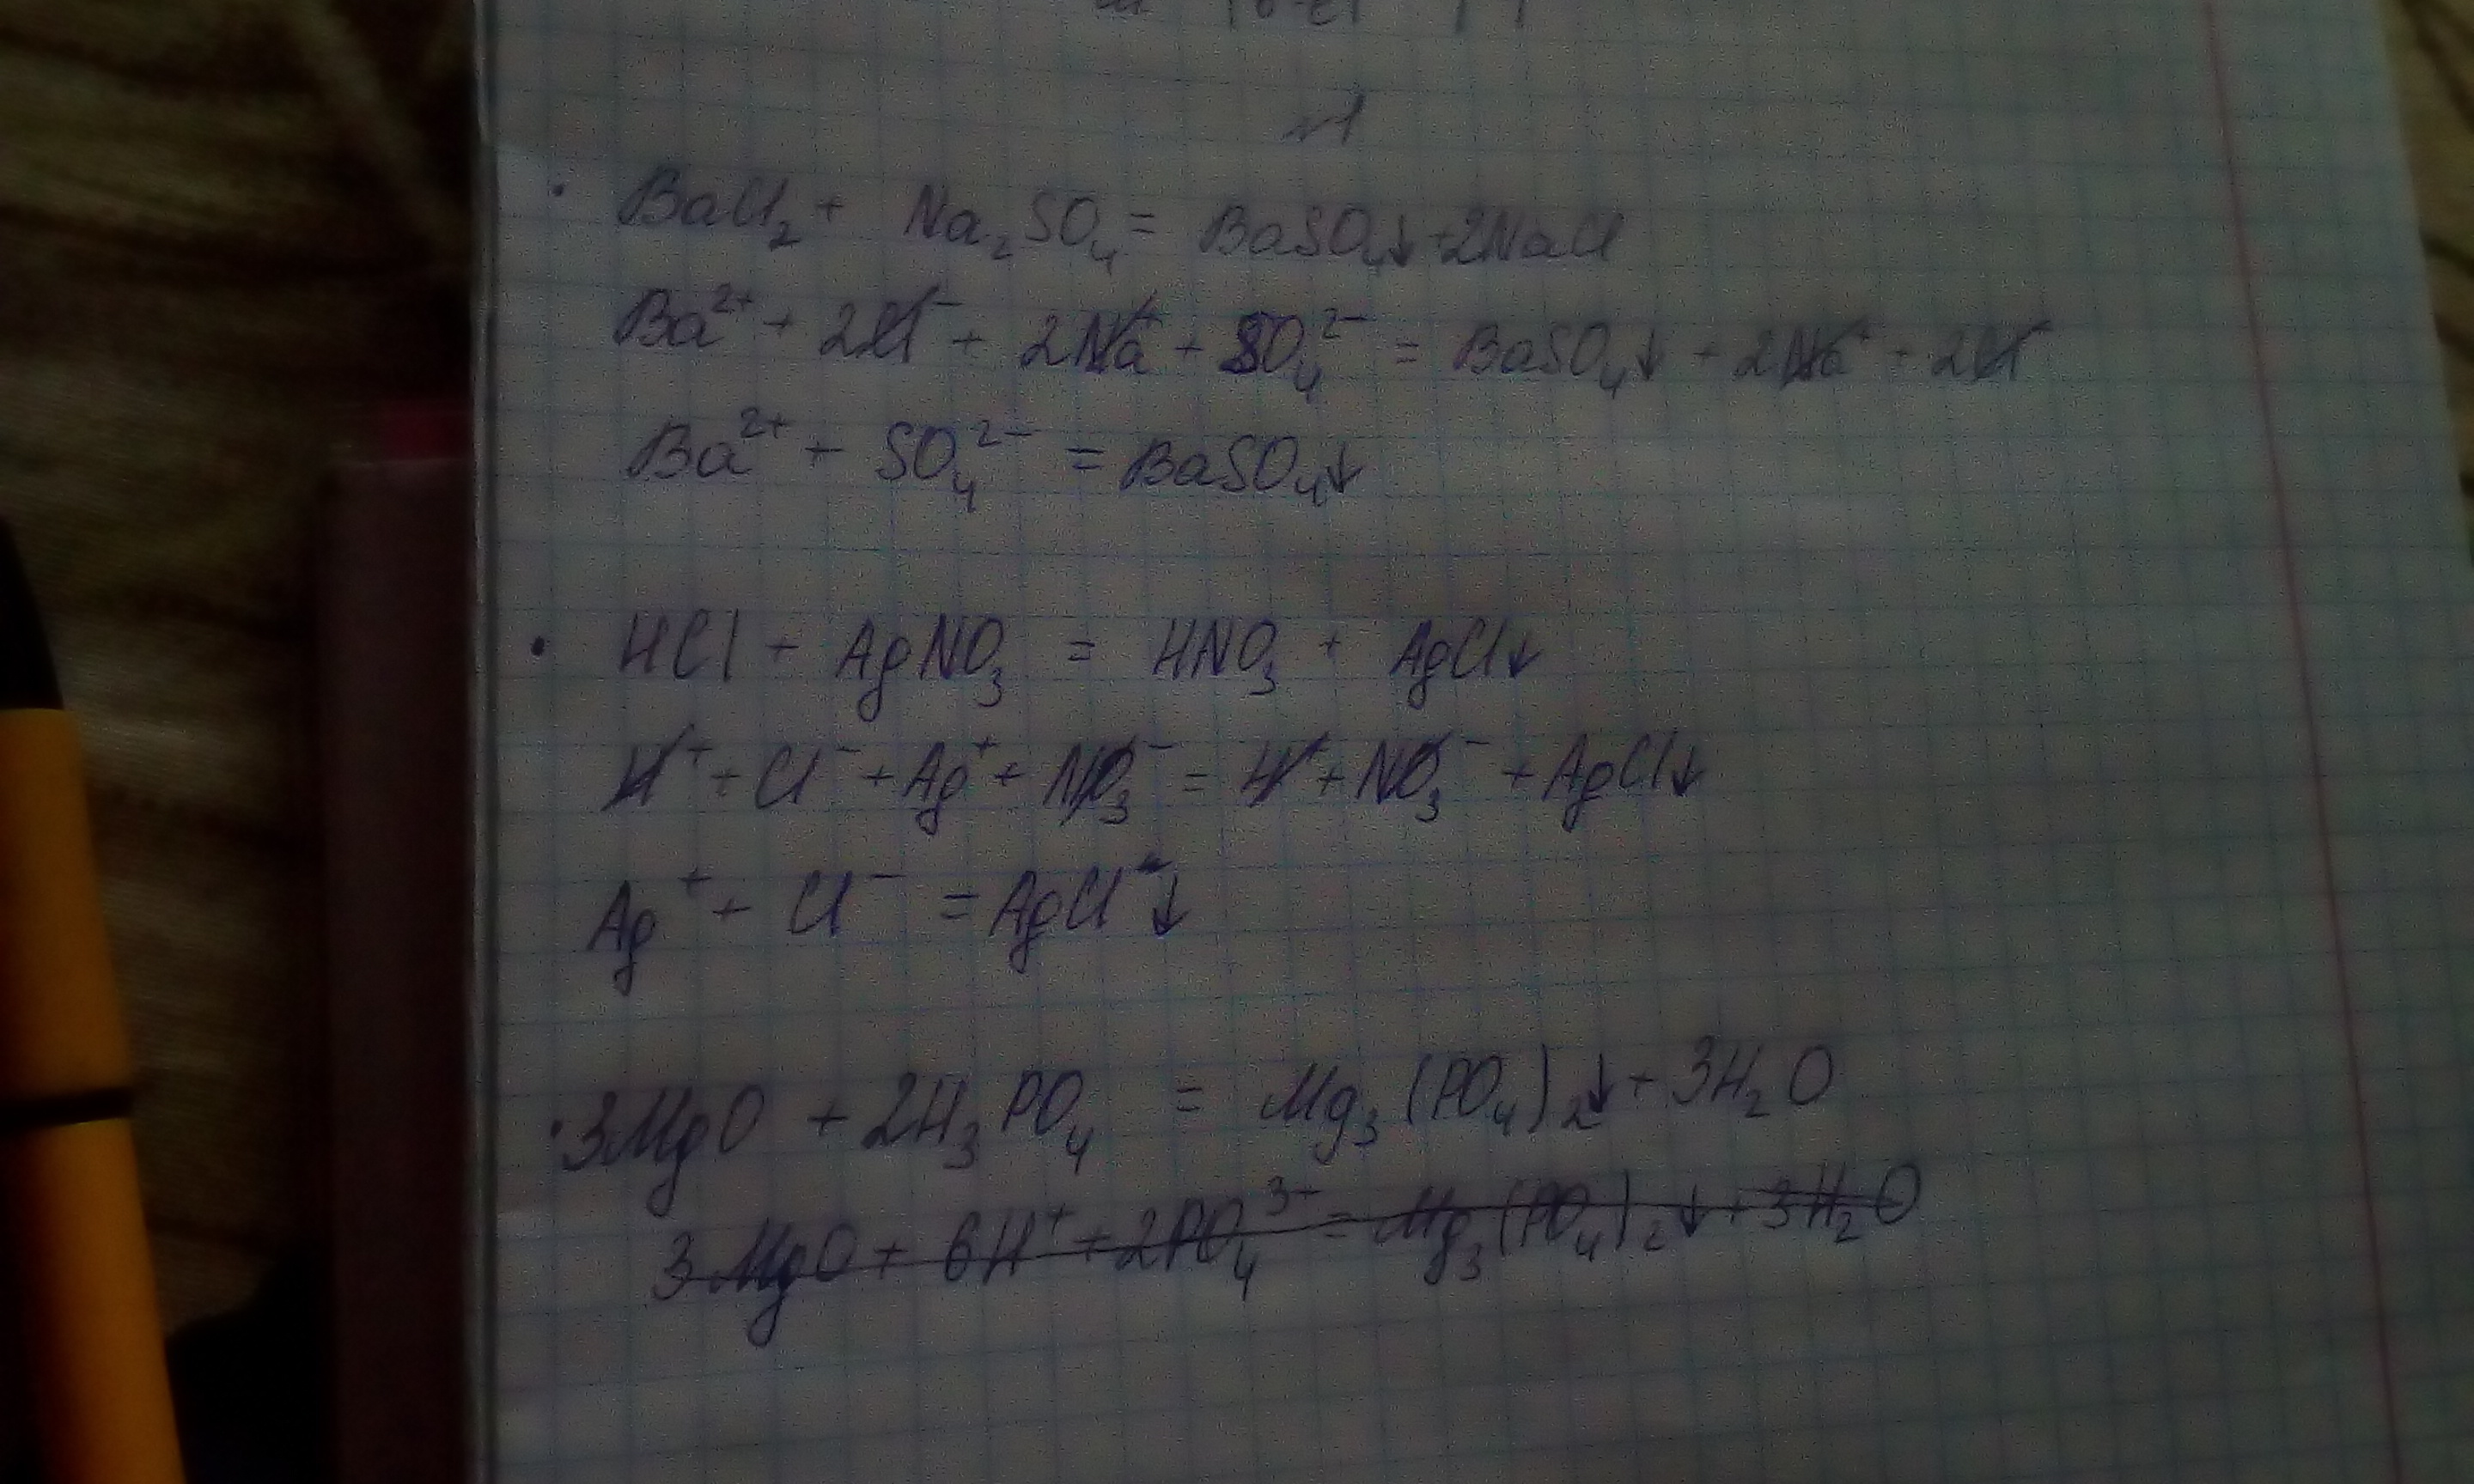 №1
· BaCl₂ + Na₂SO₄ = BaSO₄↓ + 2NaCl
Ba²⁺ + 2Cl⁻ + 2Na⁺ + SO₄²⁻ = BaSO₄↓ + 2Na⁺ + 2Cl⁻
Ba²⁺ + SO₄²⁻ = BaSO₄↓
· HCl + AgNO₃ = HNO₃ + AgCl↓
H⁺ + Cl⁻ + Ag⁺ + NO₃⁻ = H⁺ + NO₃⁻ + AgCl↓
Ag⁺ + Cl⁻ = AgCl↓
· 3MgO + 2H₃PO₄ = Mg₃(PO₄)₂↓ + 3H₂O
3MgO + 6H⁺ + 2PO₄³⁻ = Mg₃(PO₄)₂↓ + 3H₂O